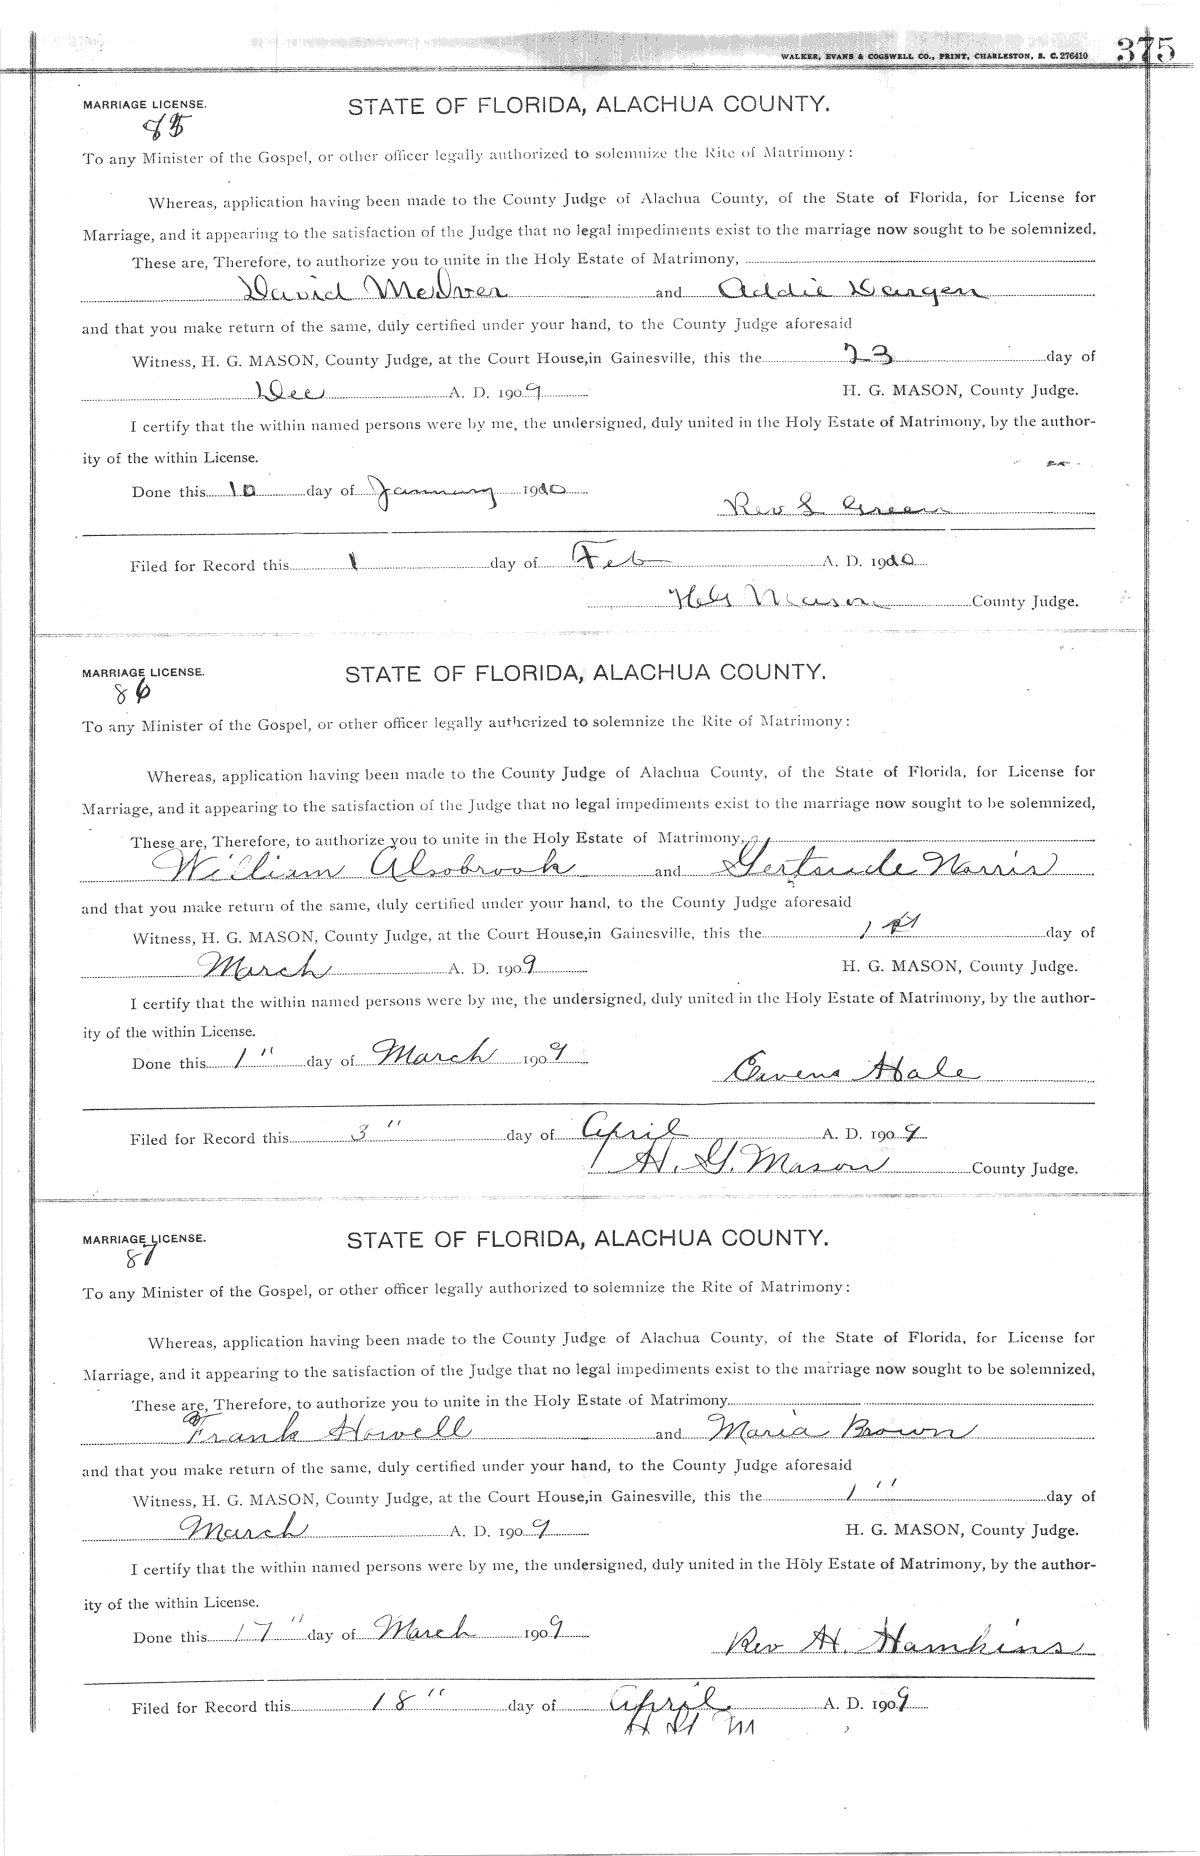 WALKER, EVANS & COGSWELL CO., PRINT, CHARLESTON, S. C. 276410 375
MARRIAGE LICENSE. STATE OF FLORIDA, ALACHUA COUNTY.
85
To any Minister of the Gospel, or other officer legally authorized to solemnize the Rite of Matrimony:
Whereas, application having been made to the County Judge of Alachua County, of the State of Florida, for License for
Marriage, and it appearing to the satisfaction of the Judge that no legal impediments exist to the marriage now sought to be solemnized,
These are, Therefore, to authorize you to unite in the Holy Estate of Matrimony,
David McIver and Addie Dargen
and that you make return of the same, duly certified under your hand, to the County Judge aforesaid
Witness, H. G. MASON, County Judge, at the Court House, in Gainesville, this the 23 day of
Dec A. D. 1909 H. G. MASON, County Judge.
I certify that the within named persons were by me, the undersigned, duly united in the Holy Estate of Matrimony, by the author-
ity of the within License.
Done this 10 day of January 1910
Rev S Green
Filed for Record this 1 day of Feb A. D. 1910
H G Mason County Judge.
MARRIAGE LICENSE. STATE OF FLORIDA, ALACHUA COUNTY.
86
To any Minister of the Gospel, or other officer legally authorized to solemnize the Rite of Matrimony:
Whereas, application having been made to the County Judge of Alachua County, of the State of Florida, for License for
Marriage, and it appearing to the satisfaction of the Judge that no legal impediments exist to the marriage now sought to be solemnized,
These are, Therefore, to authorize you to unite in the Holy Estate of Matrimony,
William Alsobrook and Gertrude Norris
and that you make return of the same, duly certified under your hand, to the County Judge aforesaid
Witness, H. G. MASON, County Judge, at the Court House, in Gainesville, this the 1st day of
March A. D. 1909 H. G. MASON, County Judge.
I certify that the within named persons were by me, the undersigned, duly united in the Holy Estate of Matrimony, by the author-
ity of the within License.
Done this 1" day of March 1909
Owens Hale
Filed for Record this 3" day of April A. D. 1909
H. G. Mason County Judge.
MARRIAGE LICENSE. STATE OF FLORIDA, ALACHUA COUNTY.
87
To any Minister of the Gospel, or other officer legally authorized to solemnize the Rite of Matrimony:
Whereas, application having been made to the County Judge of Alachua County, of the State of Florida, for License for
Marriage, and it appearing to the satisfaction of the Judge that no legal impediments exist to the marriage now sought to be solemnized,
These are, Therefore, to authorize you to unite in the Holy Estate of Matrimony
Frank Howell and Maria Brown
and that you make return of the same, duly certified under your hand, to the County Judge aforesaid
Witness, H. G. MASON, County Judge, at the Court House, in Gainesville, this the 1" day of
March A. D. 1909 H. G. MASON, County Judge.
I certify that the within named persons were by me, the undersigned, duly united in the Holy Estate of Matrimony, by the author-
ity of the within License.
Done this 17" day of March 1909
Rev H. Hamkins
Filed for Record this 18" day of April A. D. 1909
H G M